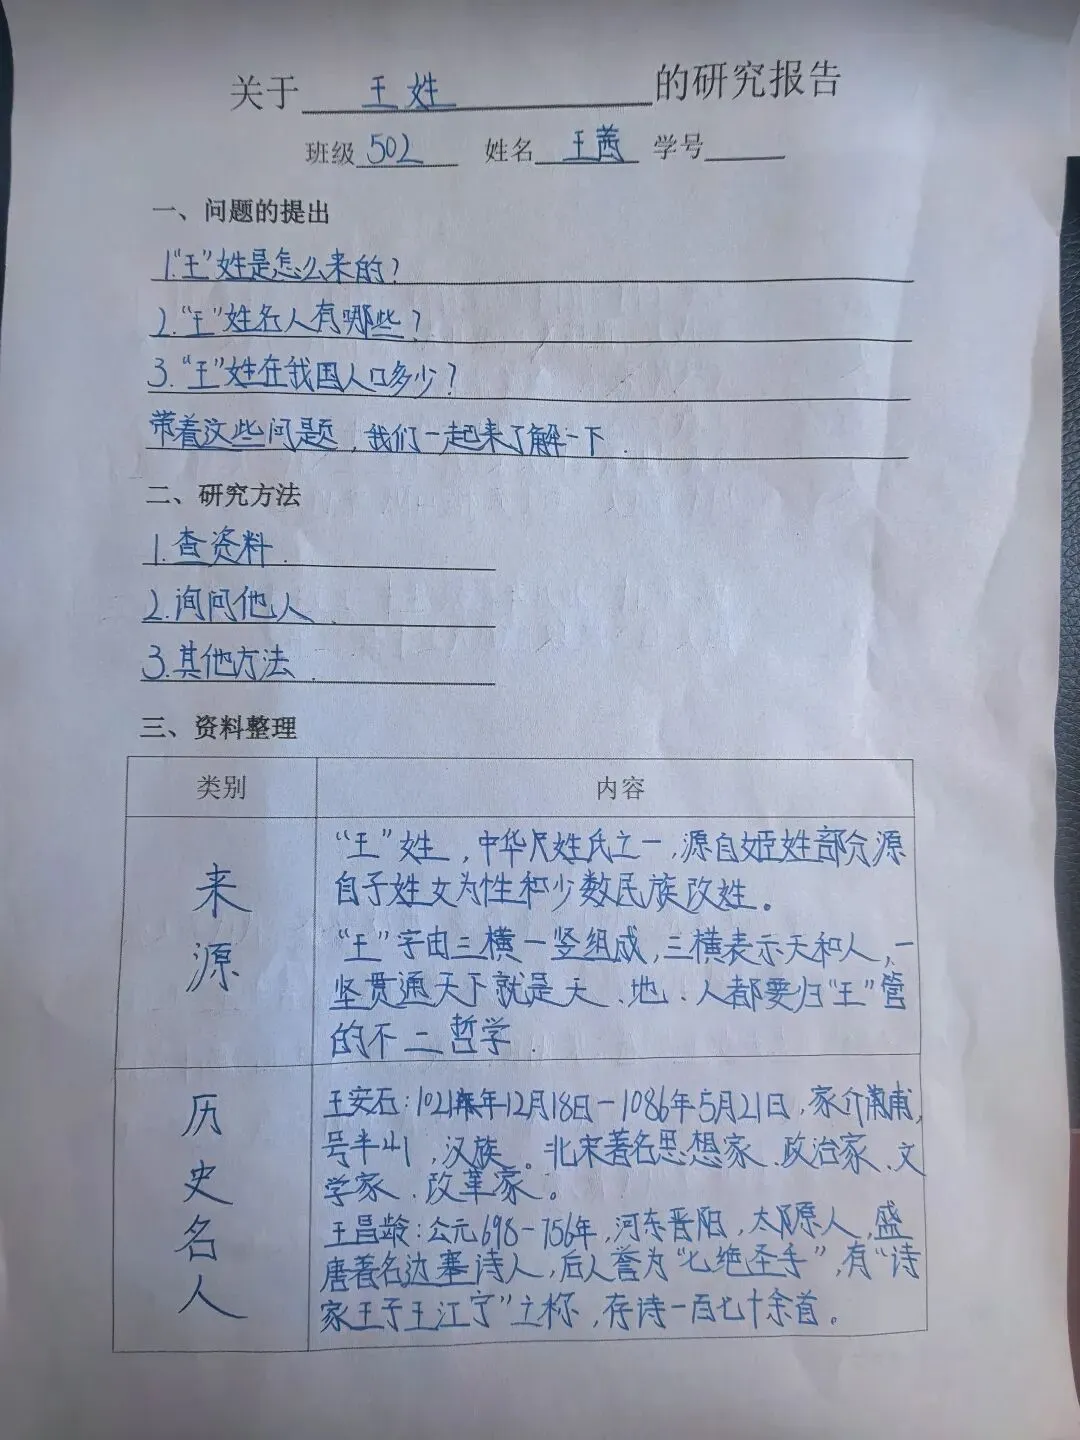 关于 王姓 的研究报告
班级 502 姓名 王茜 学号
一、问题的提出
1."王"姓是怎么来的？
2."王"姓名人有哪些？
3."王"姓在我国人口多少？
带着这些问题，我们一起来了解一下．
二、研究方法
1.查资料．
2.询问他人．
3.其他方法．
三、资料整理
类别 内容
来源
"王"姓，中华尺姓氏之一，源自姬姓部分源
自子姓女为性和少数民族改姓。
"王"字由三横一竖组成，三横表示天和人，一
坚贯通天下就是天、地、人都要归"王"管
的不二哲学．
历史名人
王安石：1021年12月18日－1086年5月21日，家介甫，
号半山，汉族。北宋著名思想家、政治家、文
学家、改革家。
王昌龄：公元698－756年，河东晋阳，太原人，盛
唐著名边塞诗人，后人誉为"七绝圣手"，有"诗
家王子王江宁"立称，存诗一百七十余首。